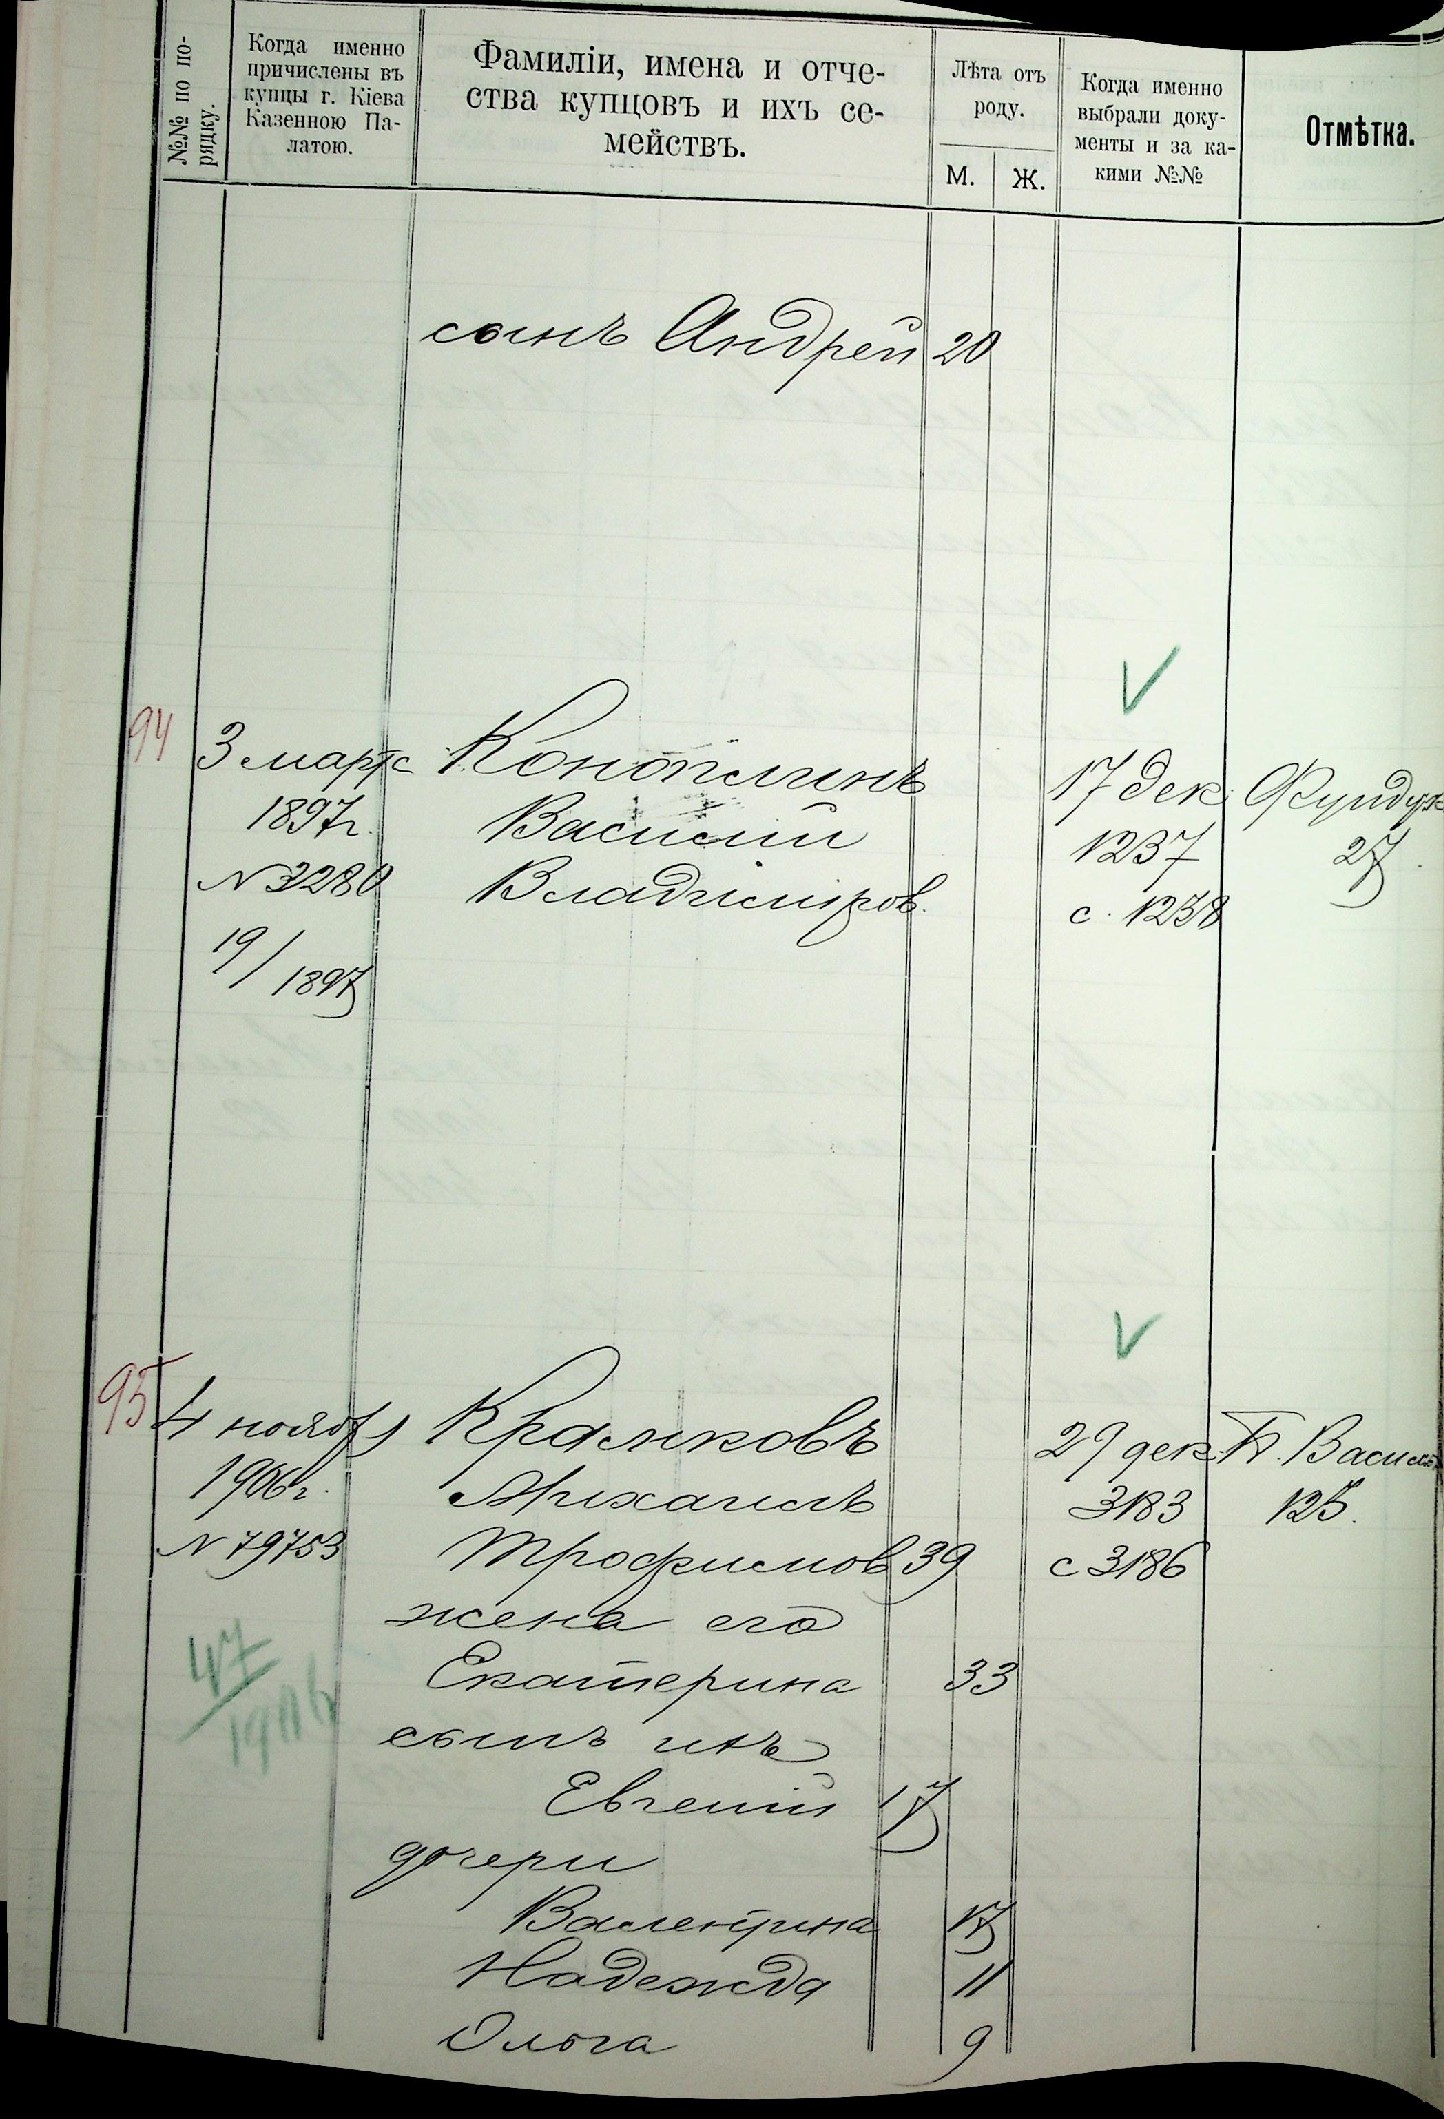 №№ по по-
рядку.
Когда именно
причислены въ
купцы г. Кіева
Казенною Па-
латою.
Фамиліи, имена и отче-
ства купцовъ и ихъ се-
мействъ.
Лѣта отъ
роду.
М.
Ж.
Когда именно
выбрали доку-
менты и за ка-
кими №№
Отмѣтка.
сынъ Андрей 20
94 3 марта Коноплинъ 17 дек. Фундук
1897 г. Василій 1237 27
N 3280 Владиміров. с. 1238
19/1897
95 4 ноября Крамковъ 29 дек. Б. Василь
1906 г. Михаилъ 3183 125.
N 79753 Трофимов 39 с 3186
жена его
47/1906
Екатерина 33
сынъ ихъ
Евгеній 17
дочери
Валентина 17
Надежда 11
Ольга 9